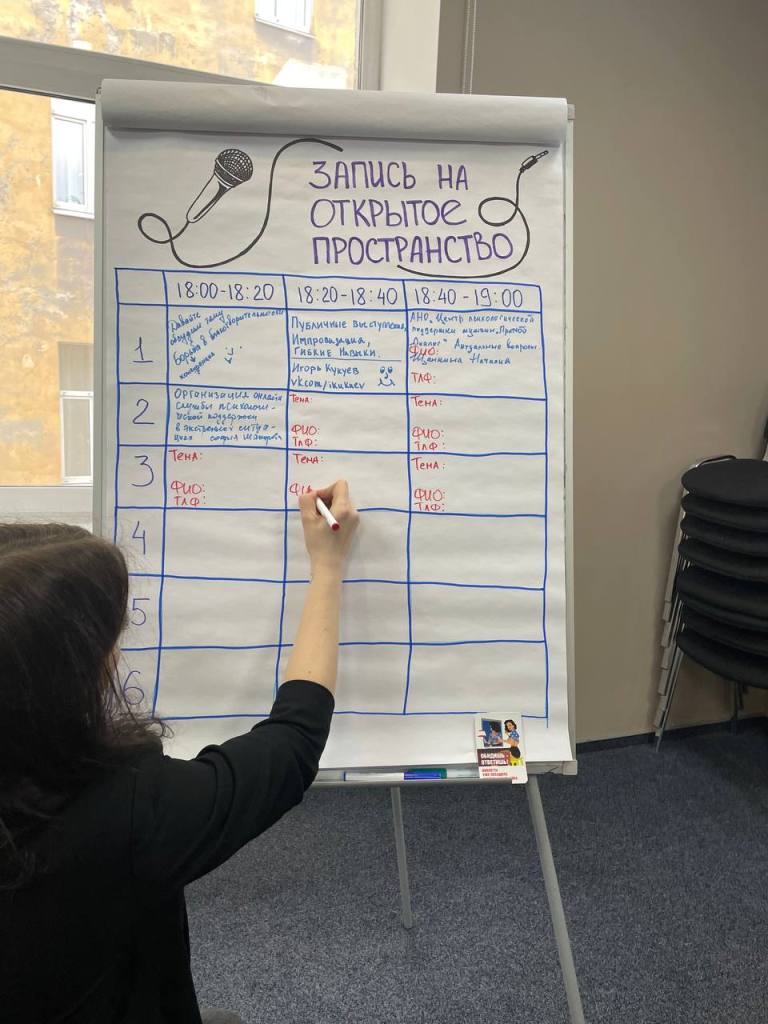 ЗАПИСЬ НА
ОТКРЫТОЕ
ПРОСТРАНСТВО
18:00-18:20
18:20-18:40
18:40-19:00
1
Давайте
обсудим тему
Борьба в благотворительности
Публичные выступления,
Импровизация,
Гибкие Навыки.
Игорь Кукуев
vk.com/ikukuev
АНО "Центр психологической
поддержки мужчин. Простой
Диалог" Актуальные вопросы
ФИО:
Наталия
ТЛФ:
2
Организация онлайн
службы психологи-
ческой поддержки
в экстренных ситуа-
циях
Тема:
ФИО:
ТЛФ:
Тема:
ФИО:
ТЛФ:
3
Тема:
ФИО:
ТЛФ:
Тема:
Тема:
ФИО:
ТЛФ:
4
5
6
ОТВЕТИШЬ!